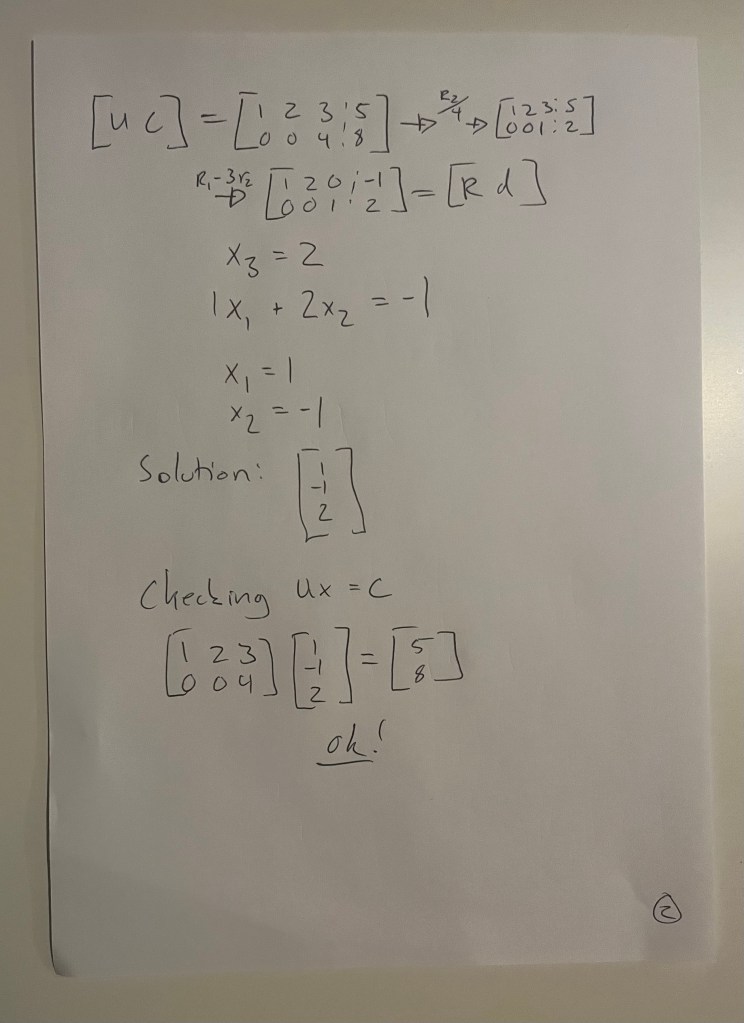 [U c] = [1 2 3 ¦ 5; 0 0 4 ¦ 8] → R2/4 → [1 2 3 ¦ 5; 0 0 1 ¦ 2]
R1-3r2 → [1 2 0 ¦ -1; 0 0 1 ¦ 2] = [R d]
x3 = 2
1x1 + 2x2 = -1
x1 = 1
x2 = -1
Solution: [1; -1; 2]
Checking Ux = c
[1 2 3; 0 0 4] [1; -1; 2] = [5; 8]
ok!
2